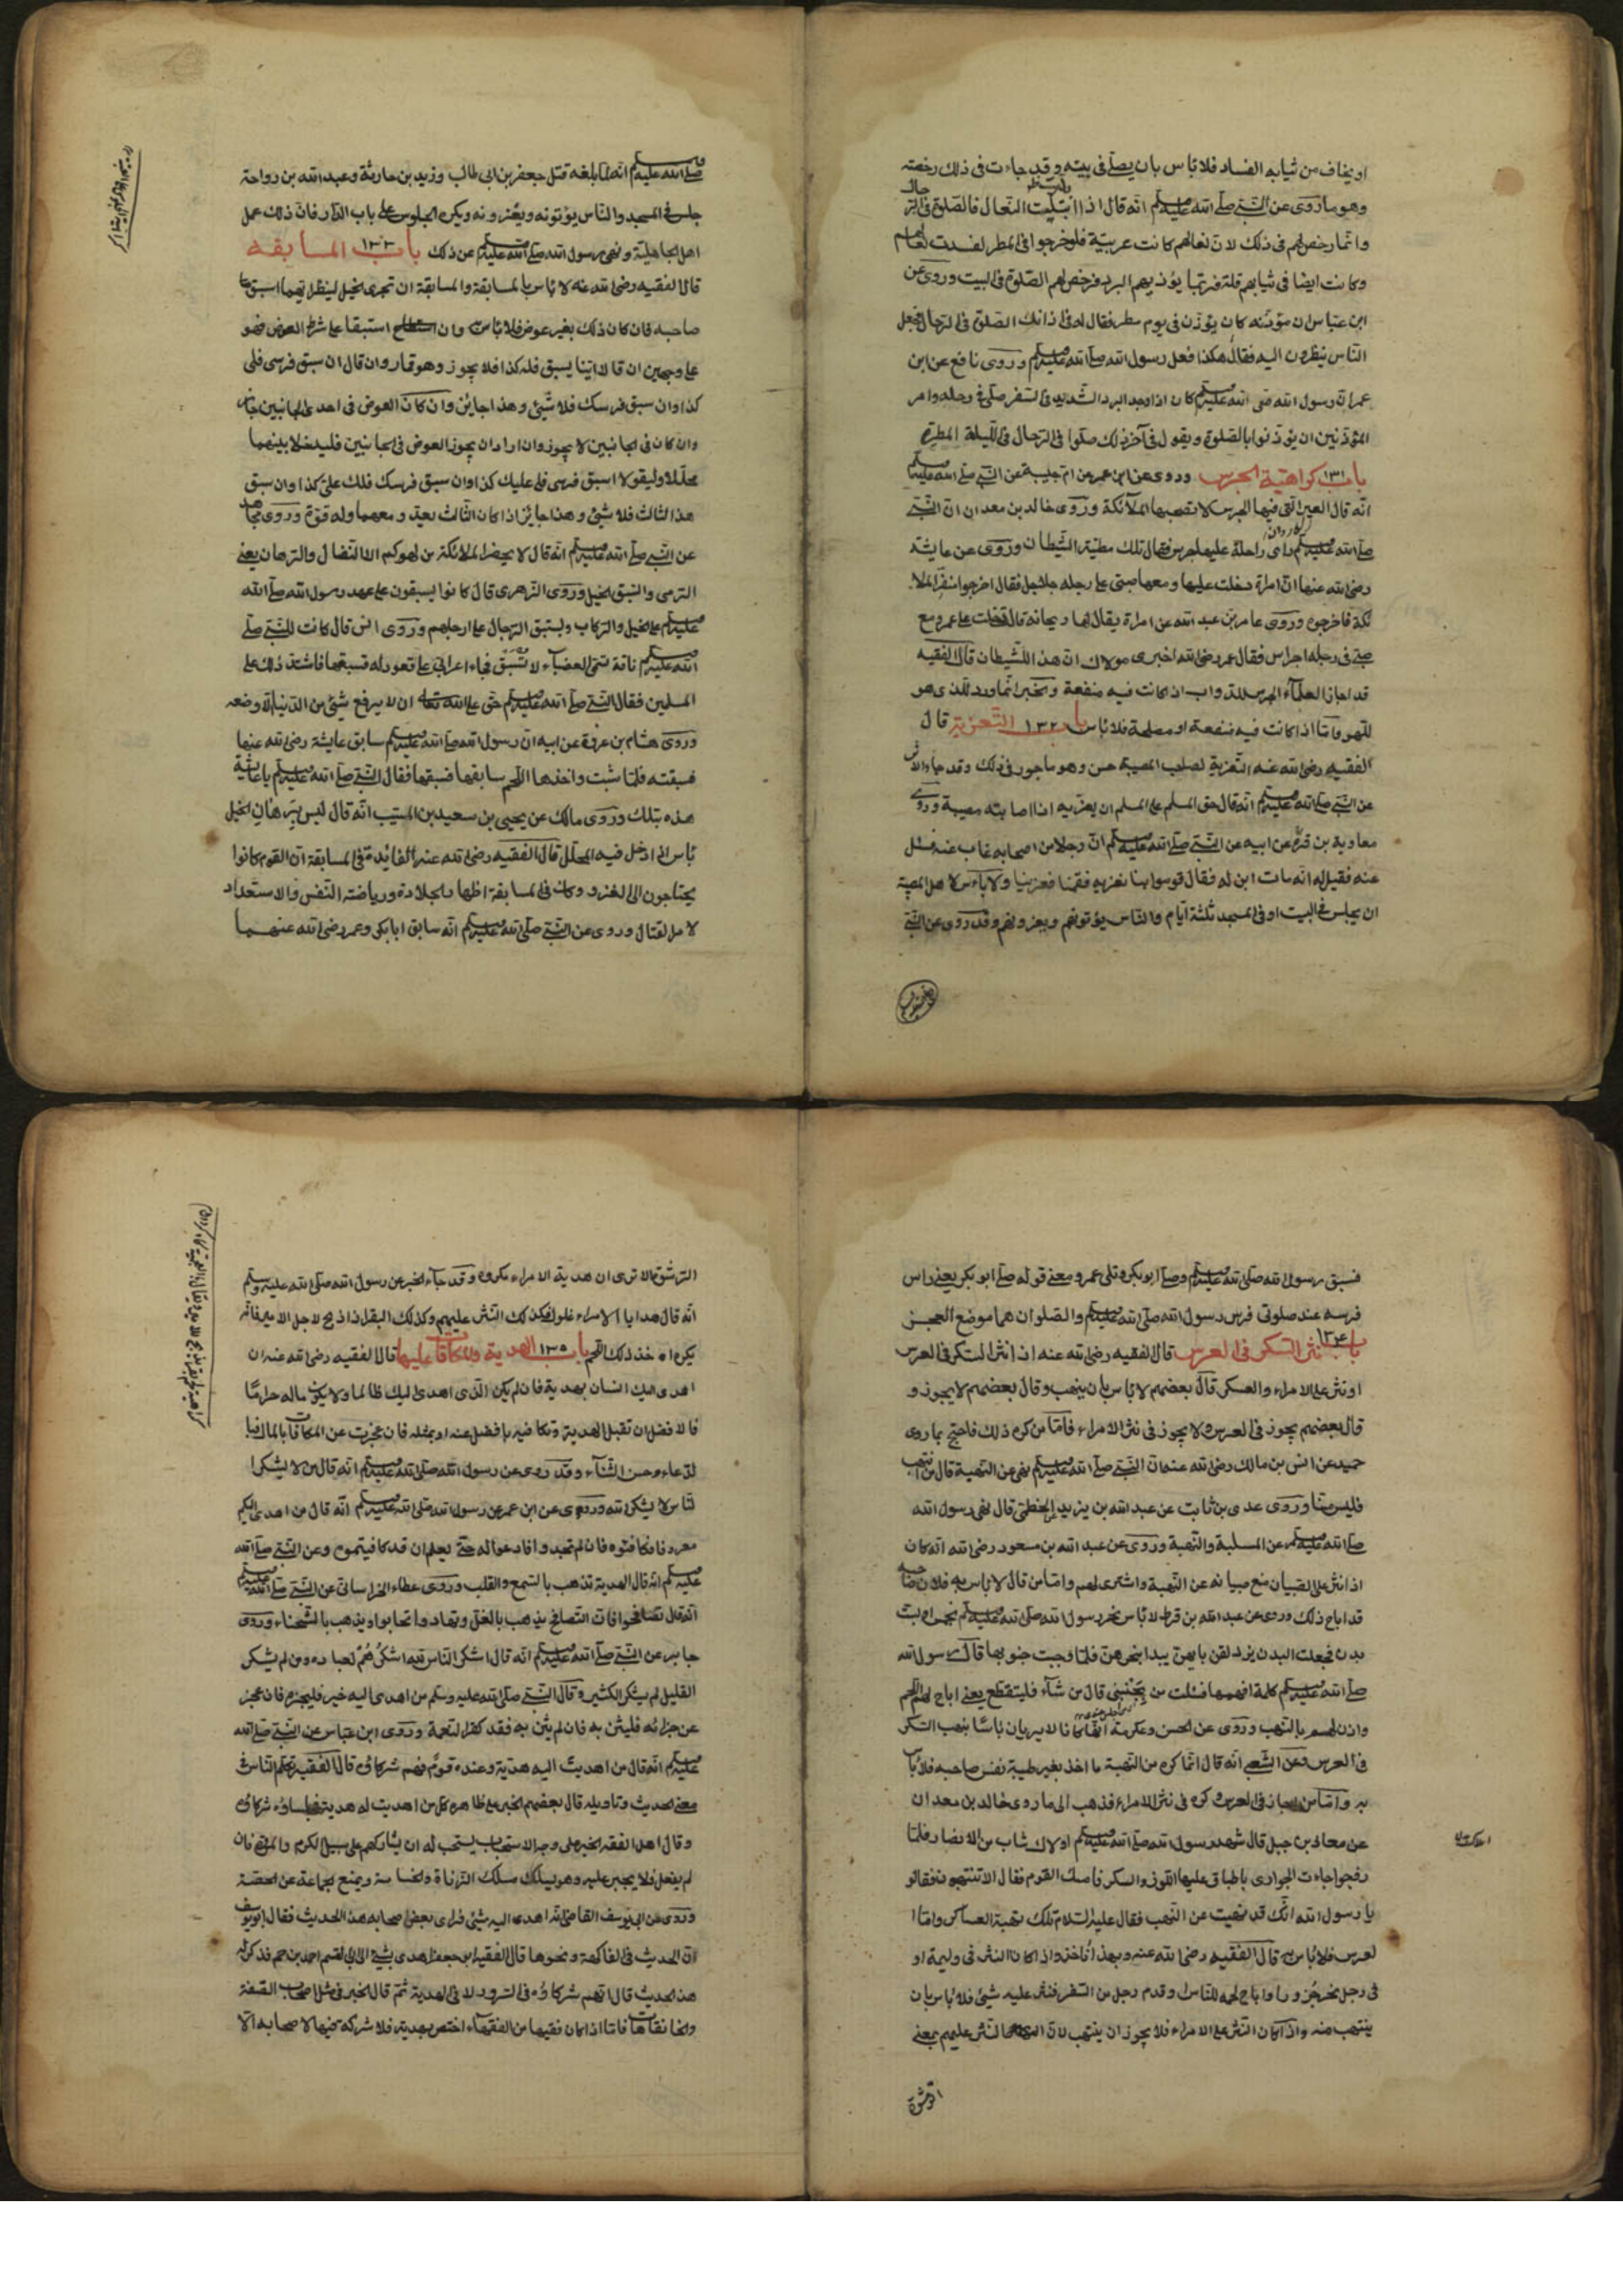 او يخاف من ثيابه الفساد فلا بأس بان يصلى فى بيته وقد جاءت فى ذلك رخصته
وهو ما روى عن النبى صلى الله عليه وسلم انه قال اذا ابتليت النعال فالصلوة فى الرحال
وانما رخص لهم فى ذلك لان نعالهم كانت عربية فلو خرجوا فى المطر لفسدت نعالهم
وكانت ايضا فى ثيابهم قلة فربما يؤذيهم البرد فرخص لهم الصلوة فى البيت وروى عن
ابن عباس ان مؤذنه كان يؤذن فى يوم مطر فقال له فى اذانك الصلوة فى الرحال فجعل
الناس ينظرون اليه فقال هكذا فعل رسول الله صلى الله عليه وسلم وروى نافع عن ابن
عمر ان رسول الله صلى الله عليه وسلم كان اذا وجد البرد الشديد فى السفر صلى فى رحله وامر
المؤذنين ان يؤذنوا بالصلوة ويقول فى آخر ذلك صلوا فى الرحال فى الليلة المطيرة
باب ١٣١ كراهية الجرس وروى عن ابن عمر عن ام حبيبة عن النبى صلى الله عليه وسلم
انه قال العير التى فيها الجرس لا تصحبها الملآئكة وروى خالد بن معدان ان النبى
كاروان
صلى الله عليه وسلم راى راحلة عليها جرس فقال تلك مطية الشيطان وروى عن عايشة
رضى الله عنها ان امراة دخلت عليها ومعها صبى على رجله جلاجل فقال اخرجوا منفر الملا
ئكة فاخرجوه وروى عامر بن عبد الله عن امراة يقال لها ريحانة قال دخلت على عمر ومع
صبى فى رجله اجراس فقال عمر رضى الله اخبرى مولاك ان هذا للشيطان قال الفقيه
قد اجاز العلمآء الجرس للدواب اذا كانت فيه منفعة والخبر انما ورد للذى هو
للهو فاما اذا كانت فيه منفعة او مصلحة فلا بأس باب ١٣٢ التعزية قال
الفقيه رضى الله عنه التعزية لصاحب المصيبة حسن وهو ماجور فى ذلك وقد جاء الاثر
عن النبى صلى الله عليه وسلم انه قال حق المسلم على المسلم ان يعزيه اذا اصابته مصيبة وروى
معاوية بن قرة عن ابيه عن النبى صلى الله عليه وسلم ان رجلا من اصحابه غاب عنه فسئل
عنه فقيل له انه مات ابن له فقال قوموا بنا نعزيه فقمنا فعزينا ولا بأس لاهل المصيبة
ان يجلس فى البيت او فى المسجد ثلثة ايام والناس يؤتونهم ويعزونهم وقد روى عن النبى
صلى الله عليه وسلم انه لما بلغه قتل جعفر بن ابى طالب وزيد بن حارثة وعبد الله بن رواحة
جلس فى المسجد والناس يؤتونه ويعزونه ويكره الجلوس على باب الدار فان ذلك عمل
اهل الجاهلية ونهى رسول الله صلى الله عليه وسلم عن ذلك باب ١٣٣ المسابقه
قال الفقيه رضى الله عنه لا بأس بالمسابقة والمسابقة ان تجرى الخيل لينظر ايهما اسبق
صاحبه فان كان ذلك بغير عوض فلا بأس وان استبقا على شرط العوض فهو
على وجهين ان قالا اينا يسبق فله كذا فلا يجوز وهو قمار وان قال ان سبق فرسى فلى
كذا وان سبق فرسك فلا شيئ وهذا جايز وان كان العوض فى احدى الجانبين جايز
وان كان فى الجانبين لا يجوز وان ارادان يجوز العوض فى الجانبين فليدخلا بينهما
محللا وليقولا اسبق فرسى فلى عليك كذا وان سبق فرسك فلك على كذا وان سبق
هذا الثالث فلا شيئ وهذا جايز اذا كان الثالث بعيد ومعهما وله قوة وروى مجاهد
عن النبى صلى الله عليه وسلم انه قال لا يحضر الملائكة من لهوكم الا النضال والرهان يعنى
الرمى والسبق الخيل وروى الزهرى قال كانوا يسبقون على عهد رسول الله صلى الله
عليه وسلم على الخيل والركاب ويستبق الرجال على ارجلهم وروى انس قال كانت للنبى صلى
الله عليه وسلم ناقة تسمى العضبآء لا تسبق فجاء اعرابى على قعود له فسبقها فاشتد ذلك على
المسلمين فقال النبى صلى الله عليه وسلم حق على الله تعالى ان لا يرفع شيئ من الدنيا الا وضعه
وروى هشام بن عروة عن ابيه ان رسول الله صلى الله عليه وسلم سابق عايشة رضى الله عنها
فسبقته فلما شبت واخذها اللحم سابقها فسبقها فقال النبى صلى الله عليه وسلم يا عايشة
هذه بتلك وروى مالك عن يحيى بن سعيد بن المسيب انه قال ليس برهان الخيل
بأس اذا دخل فيه المحلل قال الفقيه رضى الله عنه الفائدة فى المسابقة ان القوم كانوا
يحتاجون الى الغزو وكان فى المسابقة اظهار الجلادة ورياضة النفس والاستعداد
لامر القتال وروى عن النبى صلى الله عليه وسلم انه سابق ابا بكر وعمر رضى الله عنهما
فسبق رسول الله صلى الله عليه وسلم وصلى ابو بكر وتلى عمر ومعنى قوله صلى ابو بكر يعنى راس
فرسه عند صلوى فرس رسول الله صلى الله عليه وسلم والصلوان هما موضع العجز
باب ١٣٤ نثر السكر فى العرس قال الفقيه رضى الله عنه اذا نثر السكر فى العرس
او نثر على الامراء والعسكر قال بعضهم لا بأس بان ينهب وقال بعضهم لا يجوز و
قال بعضهم يجوز فى العرس ولا يجوز فى نثر الامراء فاما من كره ذلك فاحتج بما روى
حميد عن انس بن مالك رضى الله عنه ان النبى صلى الله عليه وسلم نهى عن النهبة قال من انتهب
فليس منا وروى عدى بن ثابت عن عبد الله بن يزيد الخطمى قال نهى رسول الله
صلى الله عليه وسلم عن المسلبة والنهبة وروى عن عبد الله بن مسعود رضى الله انه كان
اذا نثر على الصبيان منع صبيانه عن النهبة واشترى لهم واما من قال لا بأس به فلان صاحبه
قد اباح ذلك وروى عن عبد الله بن قرط لا بأس نحر رسول الله صلى الله عليه وسلم خمس او ست
بدن فجعلت البدن يزدلفن بايهن يبدا بنحرهن فلما وجبت جنوبها قال رسول الله
صلى الله عليه وسلم كلمة افهمها فسئلت من بجنبى قال من شآء فليقتطع يعنى اباح لهم اللحم
واذن لهم بالنهب وروى عن الحسن وعكرمة انهما كانا لا يريان بأسا بنهب السكر
فى العرس وعن الشعبى انه قال انما كره من النهبة ما اخذ بغير طيبة نفس صاحبه فلا بأس
به واما من اجاز فى العرس وكره فى نثر الامراء فذهب الى ما روى خالد بن معدان
عن معاذ بن جبل قال شهد رسول الله صلى الله عليه وسلم املاك شاب من الانصار فلما
زفجوا جاءت الجوارى باطباق عليها اللوز والسكر فامسك القوم فقال الا تنتهبون فقالو
يا رسول الله انك قد نهيت عن النهب فقال عليه السلام تلك نهبة العساكر واما ا
لعرس فلا بأس به قال الفقيه رضى الله عنه وبهذا نأخذ واذا كان النثر فى وليمة او
فى رجل نحر جزورا واباح لحمه للناس وقدم رجل من السفر فنثر عليه شيئ فلا بأس بان
ينتهب منه واذا كان النثر على الامراء فلا يجوز ان ينتهب لان النثر عليهم بمعنى
الرشوة الا ترى ان هدية الامراء مكروه وقد جآء الخبر عن رسول الله صلى الله عليه وسلم
انه قال هدايا الامراء غلول فكذلك النثر عليهم وكذلك البقر اذا ذبح لاجل الامير فانه
يكره اخذ ذلك اللحم باب ١٣٥ الهدية والمكافات عليها قال الفقيه رضى الله عنه ان
اهدى اليك انسان بهدية فان لم يكن الذى اهدى اليك ظالما ولا يكون ماله حراما
فالافضل ان تقبل الهدية وتكافيه بافضل عنه او بمثله فان عجزت عن المكافات بالمال فبا
لدعاء وحسن الثنآء وقد روى عن رسول الله صلى الله عليه وسلم انه قال من لا يشكر ا
لناس لا يشكر الله وروى عن ابن عمر عن رسول الله صلى الله عليه وسلم انه قال من اهدى اليكم
معروفا فكافئوه فان لم تجدوا فادعوا له حتى يعلم ان قد كافيتموه وعن النبى صلى الله
عليه وسلم انه قال الهدية تذهب بالسمع والقلب وروى عطاء الخراسانى عن النبى صلى الله عليه وسلم
انه قال تصافحوا فان التصافح يذهب بالغل وتهادوا تحابوا ويذهب بالشحناء وروى
جابر عن النبى صلى الله عليه وسلم انه قال اشكر الناس لله اشكرهم لعباده ومن لم يشكر
القليل لم يشكر الكثير وقال النبى صلى الله عليه وسلم من اهدى اليه خير فليجزه فان عجز
عن جزائه فليثن به فان لم يثن به فقد كفر النعمة وروى ابن عباس عن النبى صلى الله
عليه وسلم انه قال من اهديت اليه هدية وعنده قوم فهم شركاؤه قال الفقيه تكلم الناس فى
معنى الحديث وتاويله قال بعضهم الخبر على ظاهره كل من اهديت له هدية فجلساؤه شركاؤه
وقال اهل الفقه الخبر على وجه الاستحباب يستحب له ان يشاركهم على سبيل الكرم والمروة فان
لم يفعل فلا يجبر عليه وهو يسلك مسلك الزناة والخاسة ويمنع الجماعة عن الحصة
وروى عن ابى يوسف القاضى انه اهدى اليه شيئ فراى بعض اصحابه هذا الحديث فقال ابو يوسف
ان الحديث فى الفاكهة ونحوها قال الفقيه ابن جعفر اهدى بشيئ الى ابى القسم احمد بن حم فذكر له
هذا الحديث قال انهم شركاؤه فى السرور لا فى الهدية ثم قال الخبر فى مثل اصحاب الصفة
والخانقاهات فاما اذا كان فقيها من الفقهاء اختص بهدية فلا شركة فيها لاصحابه الا
الرشوة